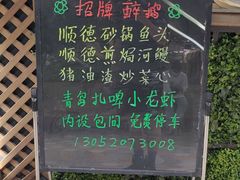 招牌 醉鹅
顺德砂锅鱼头
顺德煎焗河鳗
猪油渣炒菜心
青岛扎啤小龙虾
内设包间 免费停车
13052073008